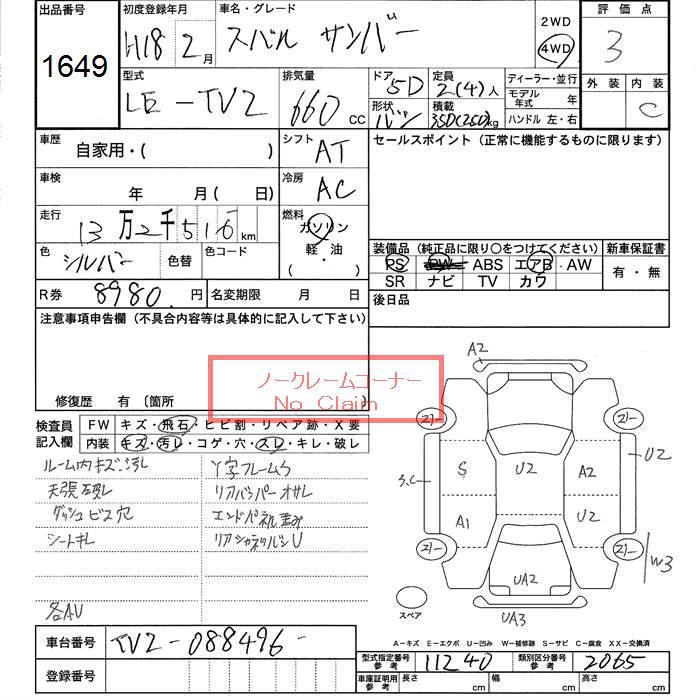 出品番号
1649
初度登録年月
H18 2月
車名・グレード
スバル サンバー
2WD
4WD
評価点
3
外装 内装
C
型式
LE-TV2
排気量
660 CC
ドア
5D
形状
バン
定員
2(4)人
積載
350(250)kg
ディーラー・並行
モデル年式 年
ハンドル 左・右
車歴
自家用・( )
シフト
AT
セールスポイント(正常に機能するものに限ります)
車検
年 月( 日)
冷房
AC
走行
13万2千516km
燃料
ガソリン
軽・油
( ・ )
色
シルバー
色替
色コード
装備品(純正品に限り○をつけてください)
PS PW ABS エアB・AW
SR ナビ TV カワ
新車保証書
有・無
R券
8980.円
名変期限 月 日
後日品
注意事項申告欄(不具合内容等は具体的に記入して下さい)
ノークレームコーナー
No Claim
修復歴 有(箇所
検査員記入欄
FW キズ・飛石・ヒビ割・リペア跡・X要
内装 キズ・汚レ・コゲ・穴・スレ・キレ・破レ
ルーム内キズ汚レ
天張破レ
ダッシュビス穴
シートキレ
各AU
Y字フレームサ
リアバンパーオサレ
エンドパネル歪み
A2
S
3.C
U2
A2
U2
A1
U2
W3
UA2
UA3
スペア
A-キズ E-エクボ U-凹み W-補修跡 S-サビ C-腐食 XX-交換済
車台番号
TV2-088496-
登録番号
型式指定番号
参考
11240
類別区分番号
参考
2065
車庫証明用
参考
長さ cm
幅 cm
高さ cm